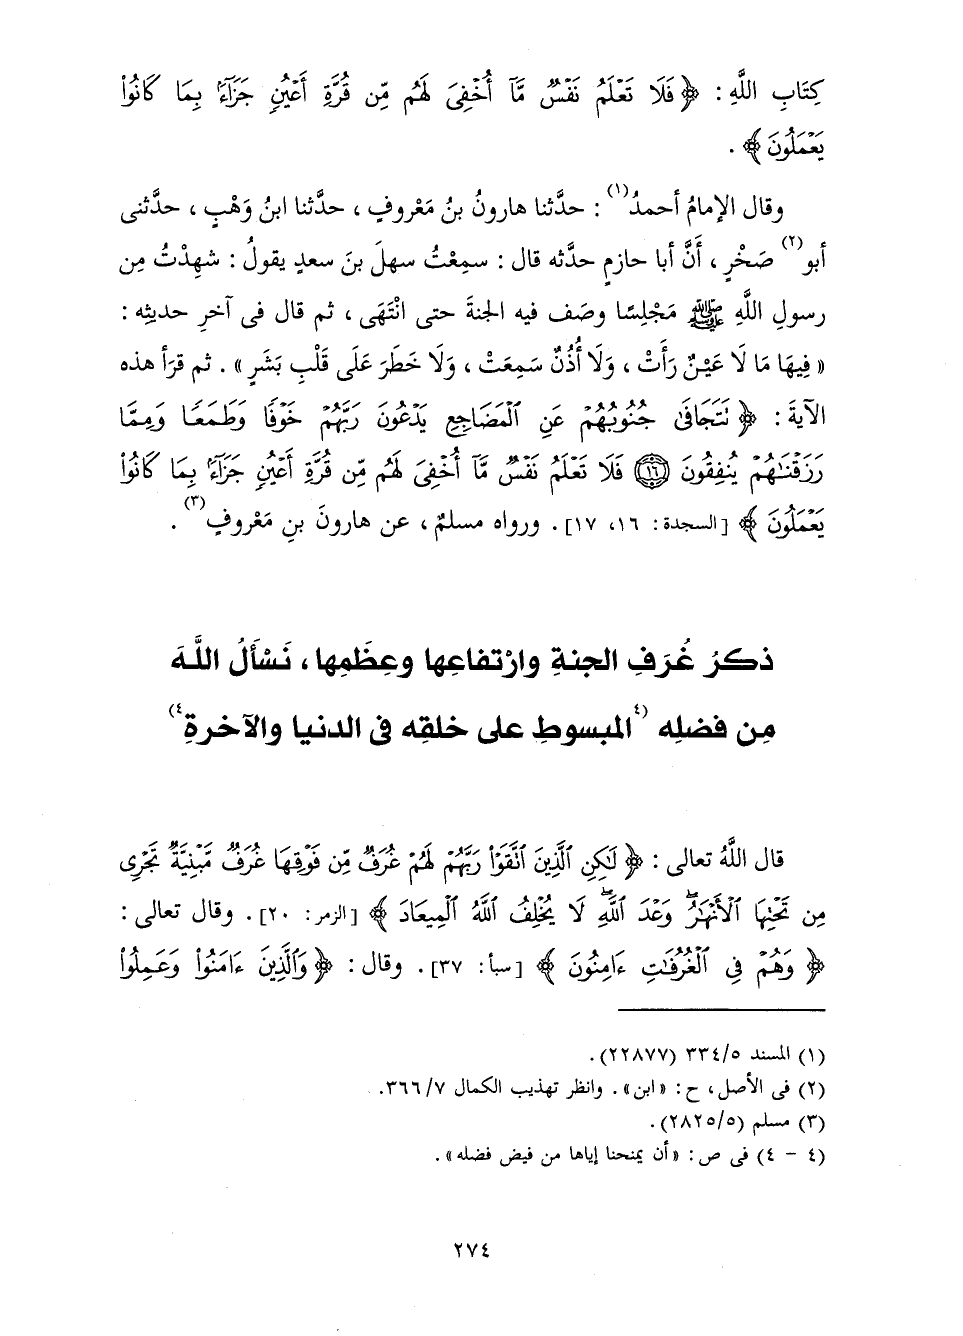 كِتَابِ اللَّهِ : ﴿ فَلَا تَعْلَمُ نَفْسٌ مَّآ أُخْفِىَ لَهُم مِّن قُرَّةِ أَعْيُنٍ جَزَآءً بِمَا كَانُوا۟
يَعْمَلُونَ ﴾ .
وقال الإمامُ أحمدُ(١) : حدَّثنا هارونُ بنُ مَعْروفٍ ، حدَّثنا ابنُ وَهْبٍ ، حدَّثنى
أبو(٢) صَخْرٍ ، أَنَّ أبا حازمٍ حدَّثه قال : سمِعْتُ سهلَ بنَ سعدٍ يقولُ : شهِدْتُ مِن
رسولِ اللَّهِ ﷺ مَجْلِسًا وصَف فيه الجنةَ حتى انْتَهَى ، ثم قال فى آخرِ حديثِه :
« فِيهَا مَا لَا عَيْنٌ رَأَتْ ، وَلَا أُذُنٌ سَمِعَتْ ، وَلَا خَطَرَ عَلَى قَلْبِ بَشَرٍ » . ثم قرَأ هذه
الآيةَ : ﴿ نَتَجَافَىٰ جُنُوبُهُمْ عَنِ ٱلْمَضَاجِعِ يَدْعُونَ رَبَّهُمْ خَوْفًا وَطَمَعًا وَمِمَّا
رَزَقْنَٰهُمْ يُنفِقُونَ ﴿١٦﴾ فَلَا تَعْلَمُ نَفْسٌ مَّآ أُخْفِىَ لَهُم مِّن قُرَّةِ أَعْيُنٍ جَزَآءً بِمَا كَانُوا۟
يَعْمَلُونَ ﴾ [السجدة : ١٦، ١٧] . ورواه مسلمٌ ، عن هارونَ بنِ مَعْروفٍ(٣) .
ذكرُ غُرَفِ الجنةِ وارْتفاعِها وعِظَمِها ، نَسْأَلُ اللَّهَ
مِن فضلِه (٤المبسوطِ على خلقِه فى الدنيا والآخرةِ٤)
قال اللَّهُ تعالى : ﴿ لَٰكِنِ ٱلَّذِينَ ٱتَّقَوْا۟ رَبَّهُمْ لَهُمْ غُرَفٌ مِّن فَوْقِهَا غُرَفٌ مَّبْنِيَّةٌ تَجْرِى
مِن تَحْتِهَا ٱلْأَنْهَٰرُ وَعْدَ ٱللَّهِ لَا يُخْلِفُ ٱللَّهُ ٱلْمِيعَادَ ﴾ [الزمر : ٢٠] . وقال تعالى :
﴿ وَهُمْ فِى ٱلْغُرُفَٰتِ ءَامِنُونَ ﴾ [سبأ : ٣٧] . وقال : ﴿ وَٱلَّذِينَ ءَامَنُوا۟ وَعَمِلُوا۟
(١) المسند ٣٣٤/٥ (٢٢٨٧٧) .
(٢) فى الأصل ، ح : « ابن » . وانظر تهذيب الكمال ٣٦٦/٧ .
(٣) مسلم (٢٨٢٥/٥) .
(٤ - ٤) فى ص : « أن يمنحنا إياها من فيض فضله » .
٢٧٤